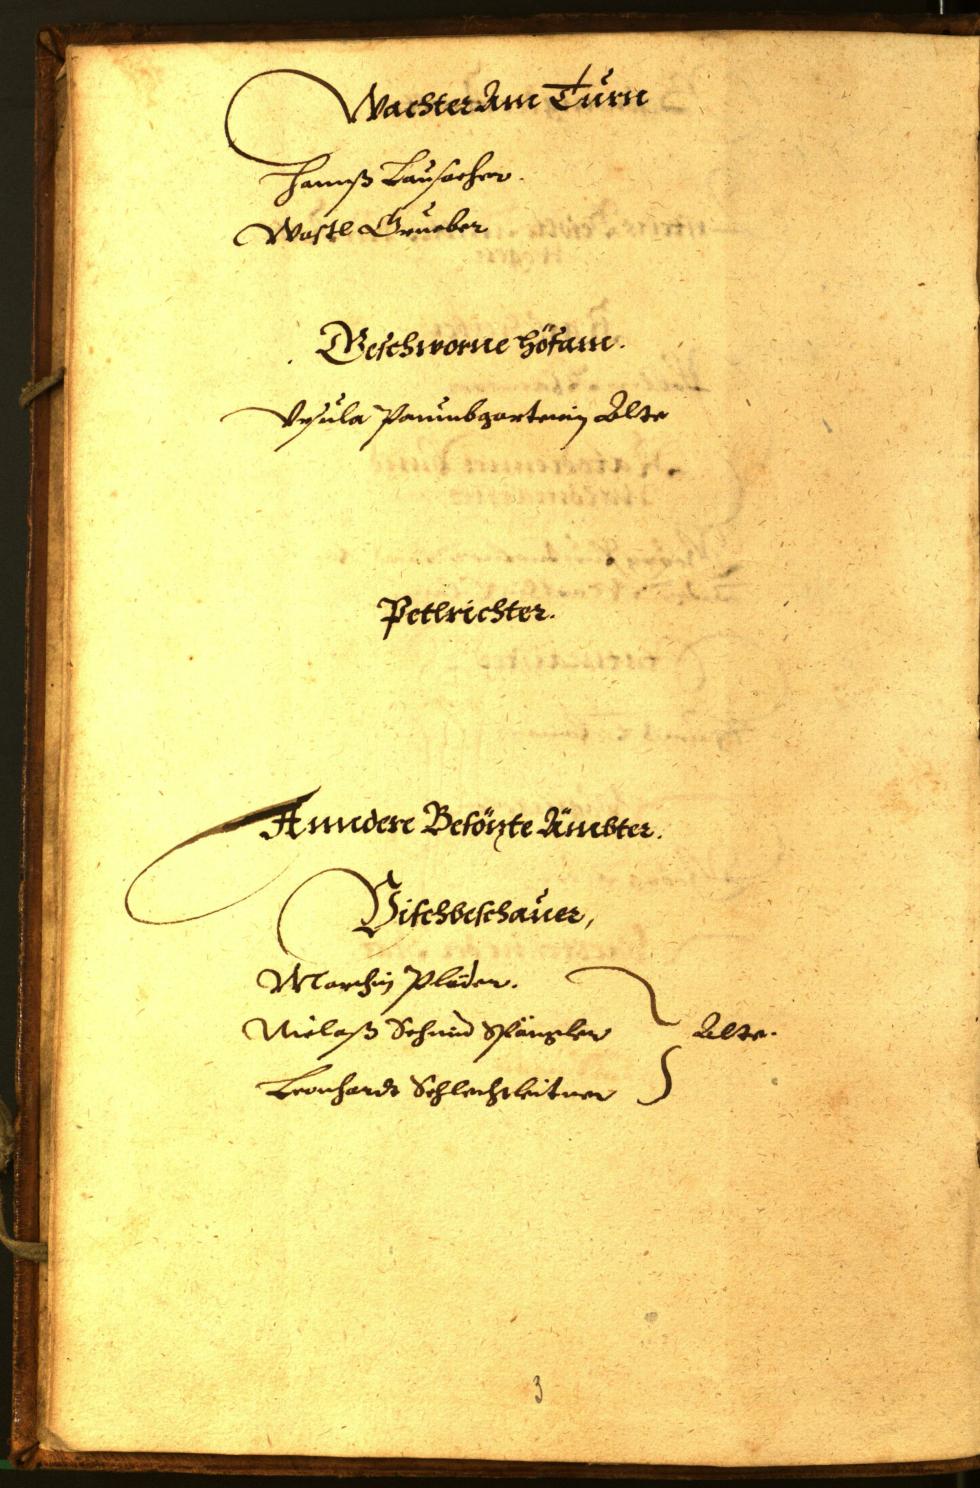 Wachter Am Turn
Hannß Lausacher.
Wastl Grueber
Geschworne Höfam.
Vrsula Paumbgartnerin Alte
Petlrichter.
Anndere Besözte Ämbter.
Vischbeschauer,
Marthin Plader.
Niclaß Schmid Spängler Alte.
Leonhardt Schlechtleitner
3